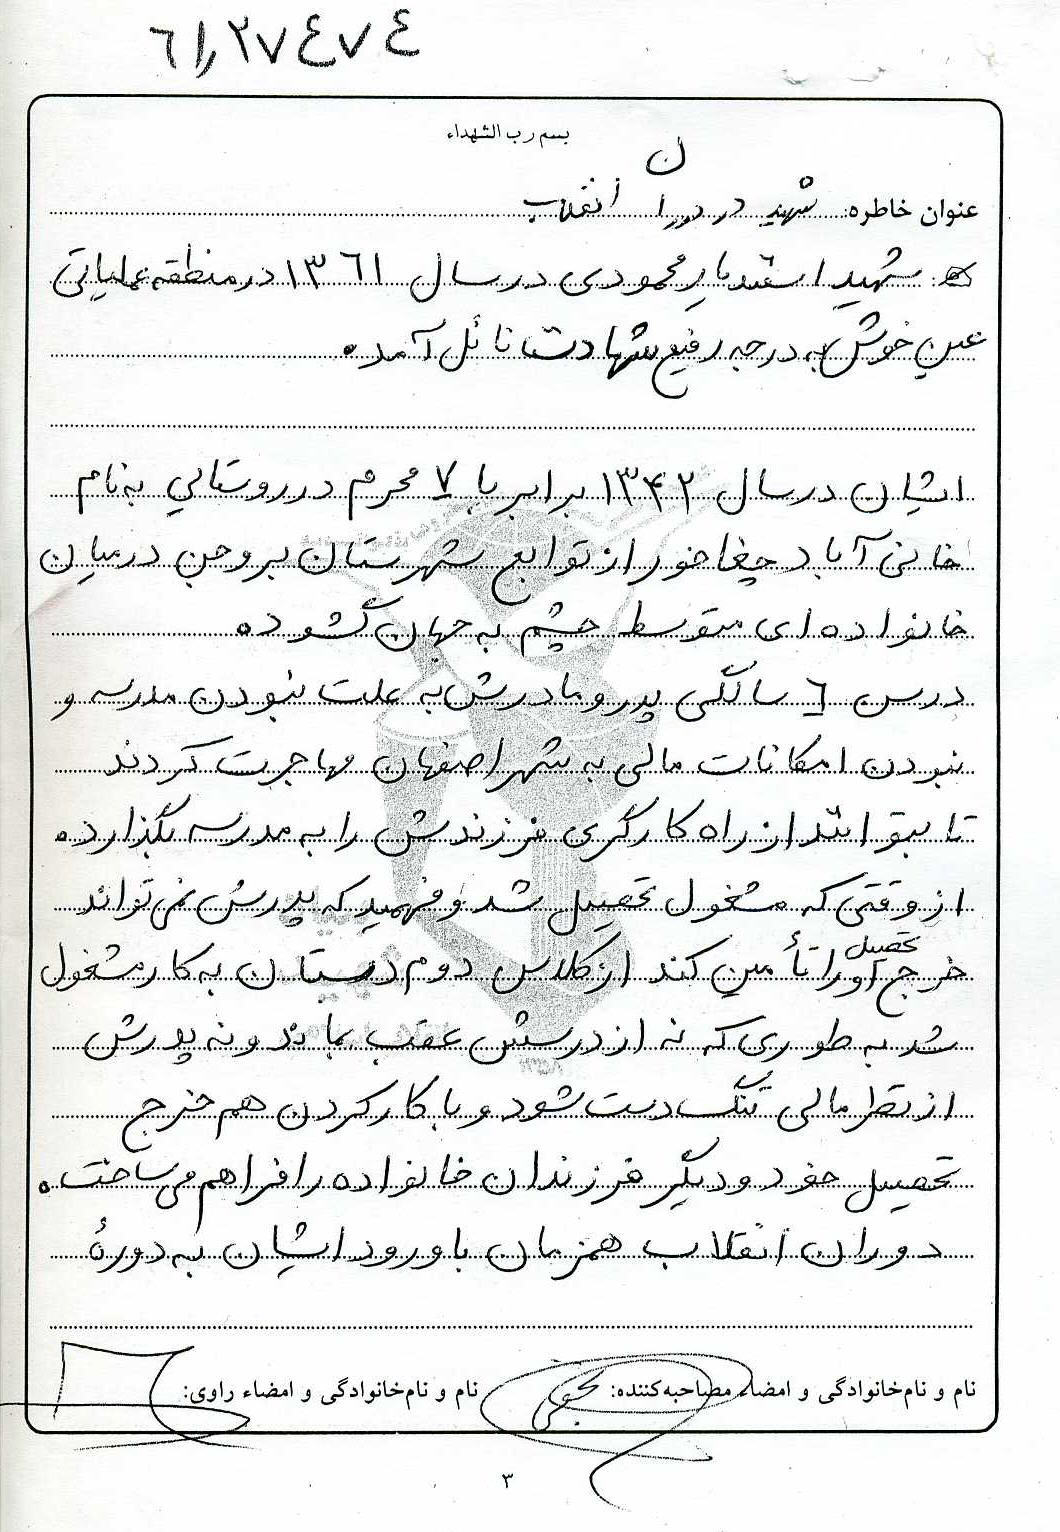 ٦١٫٢٧٤٧٤
بسم رب الشهداء
عنوان خاطره: شهید در دوران انقلاب
شهید اسفندیار محمودی در سال ۱۳٦۱ در منطقه عملیاتی
عین خوش به درجه رفیع شهادت نائل آمد.
ایشان در سال ۱۳۴۲ برابر با ۷ محرم در روستایی به نام
خانی آباد چغاخور از توابع شهرستان بروجن در میان
خانواده ای متوسط چشم به جهان گشود.
در سن ٦ سالگی پدر و مادرش به علت نبودن مدرسه و
نبودن امکانات مالی به شهر اصفهان مهاجرت کردند
تا بتوانند از راه کارگری فرزندش را به مدرسه بگذارد.
از وقتی که مشغول تحصیل شد و فهمید که پدرش نمی تواند
خرج تحصیل او را تأمین کند از کلاس دوم دبستان به کار مشغول
شد به طوری که نه از درسش عقب بماند و نه پدرش
از نظر مالی تنگ دست شود و با کار کردن هم خرج
تحصیل خود و دیگر فرزندان خانواده را فراهم می ساخت.
دوران انقلاب همزمان با ورود ایشان به دورهٔ
نام و نام خانوادگی و امضاء مصاحبه کننده:
نام و نام خانوادگی و امضاء راوی:
۳